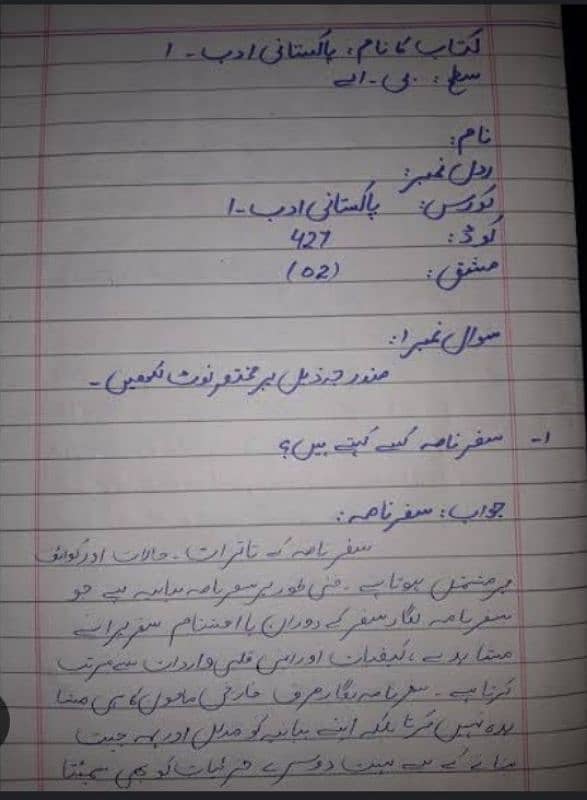 کتاب کا نام: پاکستانی ادب۔ ۱
سطح: بی۔اے
نام:
رول نمبر:
کورس: پاکستانی ادب۔۱
کوڈ: 427
مشق: (02)
سوال نمبر ۱:
مندرجہ ذیل پر مختصر نوٹ لکھیں۔
۱۔ سفر نامہ کسے کہتے ہیں؟
جواب: سفر نامہ:
سفر نامہ کے تاثرات۔ حالات اور کوائف
پر مشتمل ہوتا ہے۔ فنی طور پر سفر نامہ بیانیہ ہے جو
سفر نامہ نگار سفر کے دوران یا اختتام سفر پر اپنے
مشاہدے، کیفیات اور اس قلبی واردات سے مرتب
کرتا ہے۔ سفر نامہ نگار صرف خارجی ماحول کا ہی مشا
ہدہ نہیں کرتا بلکہ اپنے بیانیہ کو مدلل اور ہمہ جہت
بنانے کے لیے بہت دوسرے جزئیات کو بھی سمیٹتا